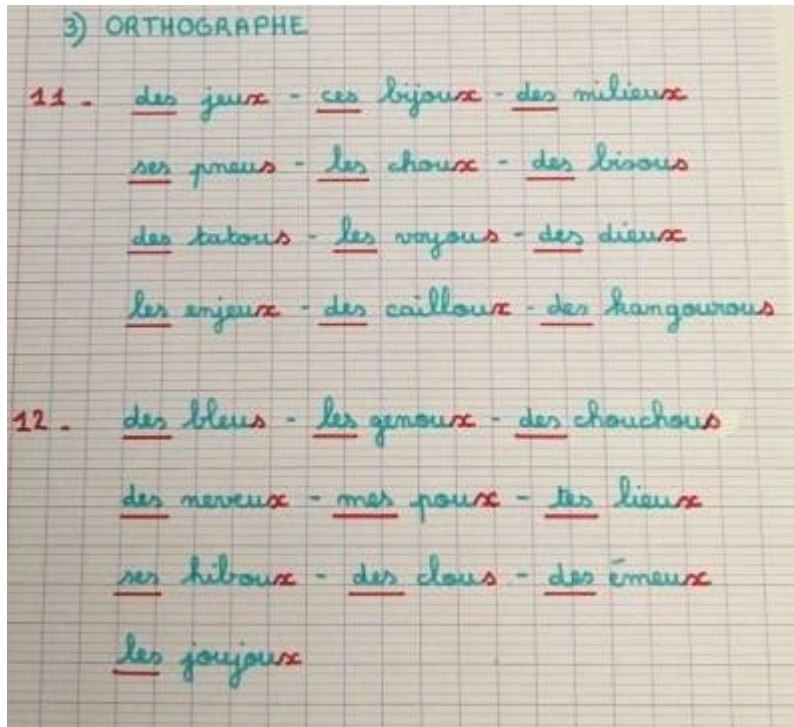 3) ORTHOGRAPHE
11 - des jeux - ces bijoux - des milieux
ses pneus - les choux - des bisous
des tatous - les voyous - des dieux
les enjeux - des cailloux - des kangourous
12 - des bleus - les genoux - des chouchous
des neveux - mes poux - tes lieux
ses hiboux - des clous - des émeux
les joujoux